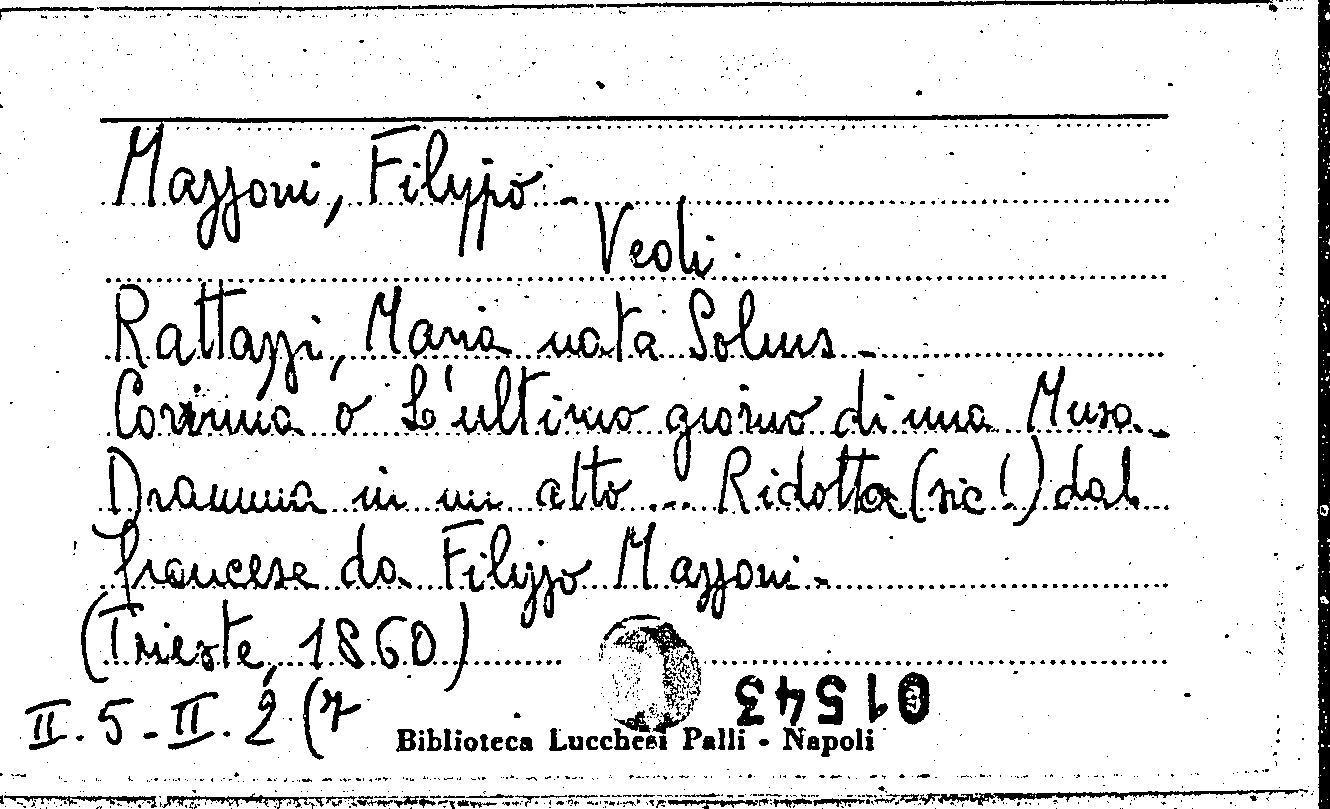 Mazzoni, Filippo -
Vedi.
Rattazzi, Maria nata Solms -
Corinna o L'ultimo giorno di una Musa -
Dramma in un atto... Ridotta (sic!) dal
francese da Filippo Mazzoni -
(Trieste, 1860)
II. 5 - II. 2 (7
01543
Biblioteca Lucchesi Palli - Napoli